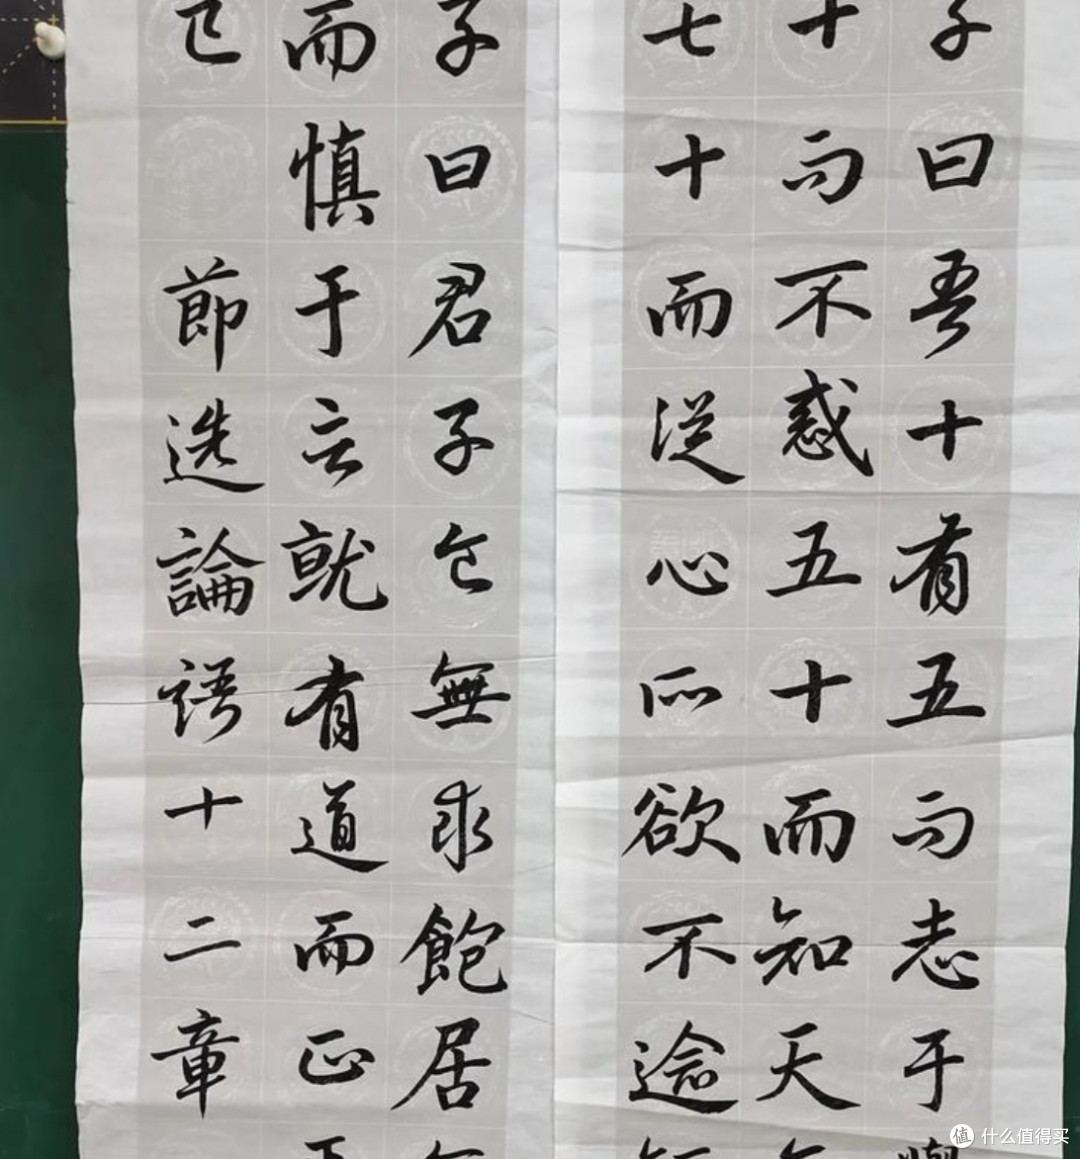 子曰吾十有五而志于
十而不惑五十而知天
七十而從心所欲不逾
子曰君子食無求飽居
而慎于言就有道而正
已 節選論語十二章
值 什么值得买